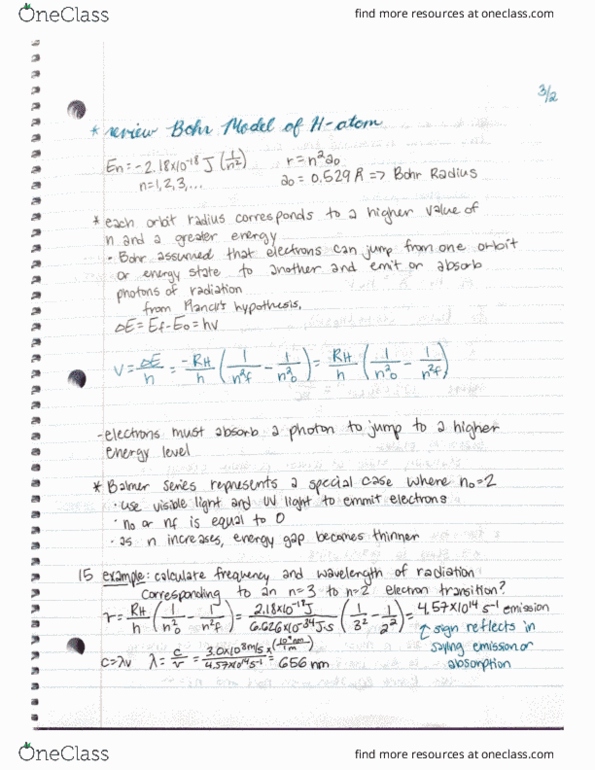 OneClass find more resources at oneclass.com
3/2
* review Bohr Model of H-atom
En = -2.18x10^-18 J (1/n²) r = n²a₀
n=1,2,3,... a₀ = 0.529 Å => Bohr Radius
* each orbit radius corresponds to a higher value of
n and a greater energy
- Bohr assumed that electrons can jump from one orbit
or energy state to another and emit or absorb
photons of radiation
from Planck's hypothesis,
ΔE = Ef - E₀ = hν
ν = ΔE/h = -RH/h (1/n²f - 1/n²₀) = RH/h (1/n²₀ - 1/n²f)
- electrons must absorb a photon to jump to a higher
energy level
* Balmer series represents a special case where n₀=2
· use visible light and UV light to emmit electrons
· n₀ or nf is equal to 0
· as n increases, energy gap becomes thinner
15 example: calculate frequency and wavelength of radiation
corresponding to an n=3 to n=2 electron transition?
ν = RH/h (1/n²₀ - 1/n²f) = 2.18x10^-18 J/6.626x10^-34 J·s (1/3² - 1/2²) = 4.57x10^14 s^-1 emission
↑ sign reflects in
saying emission or
absorption
c=λν λ = c/ν = 3.0x10^8 m/s/4.57x10^14 s^-1 x (10^9 nm/1m) = 656 nm
OneClass find more resources at oneclass.com